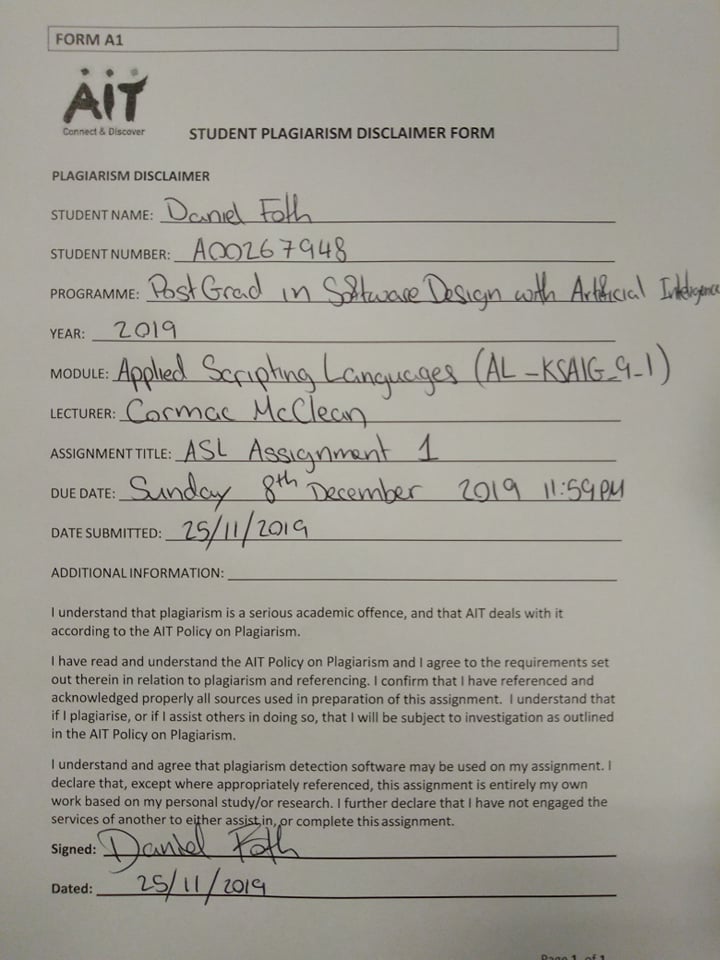 FORM A1
AIT
Connect & Discover
STUDENT PLAGIARISM DISCLAIMER FORM
PLAGIARISM DISCLAIMER
STUDENT NAME: Daniel Foth
STUDENT NUMBER: A00267948
PROGRAMME: PostGrad in Software Design with Artificial Inteligence
YEAR: 2019
MODULE: Applied Scripting Languages (AL_KSAIG_9_1)
LECTURER: Cormac McClean
ASSIGNMENT TITLE: ASL Assignment 1
DUE DATE: Sunday 8th December 2019 11:59PM
DATE SUBMITTED: 25/11/2019
ADDITIONAL INFORMATION:
I understand that plagiarism is a serious academic offence, and that AIT deals with it
according to the AIT Policy on Plagiarism.
I have read and understand the AIT Policy on Plagiarism and I agree to the requirements set
out therein in relation to plagiarism and referencing. I confirm that I have referenced and
acknowledged properly all sources used in preparation of this assignment. I understand that
if I plagiarise, or if I assist others in doing so, that I will be subject to investigation as outlined
in the AIT Policy on Plagiarism.
I understand and agree that plagiarism detection software may be used on my assignment. I
declare that, except where appropriately referenced, this assignment is entirely my own
work based on my personal study/or research. I further declare that I have not engaged the
services of another to either assist in, or complete this assignment.
Signed: Daniel Foth
Dated: 25/11/2019
Page 1 of 1